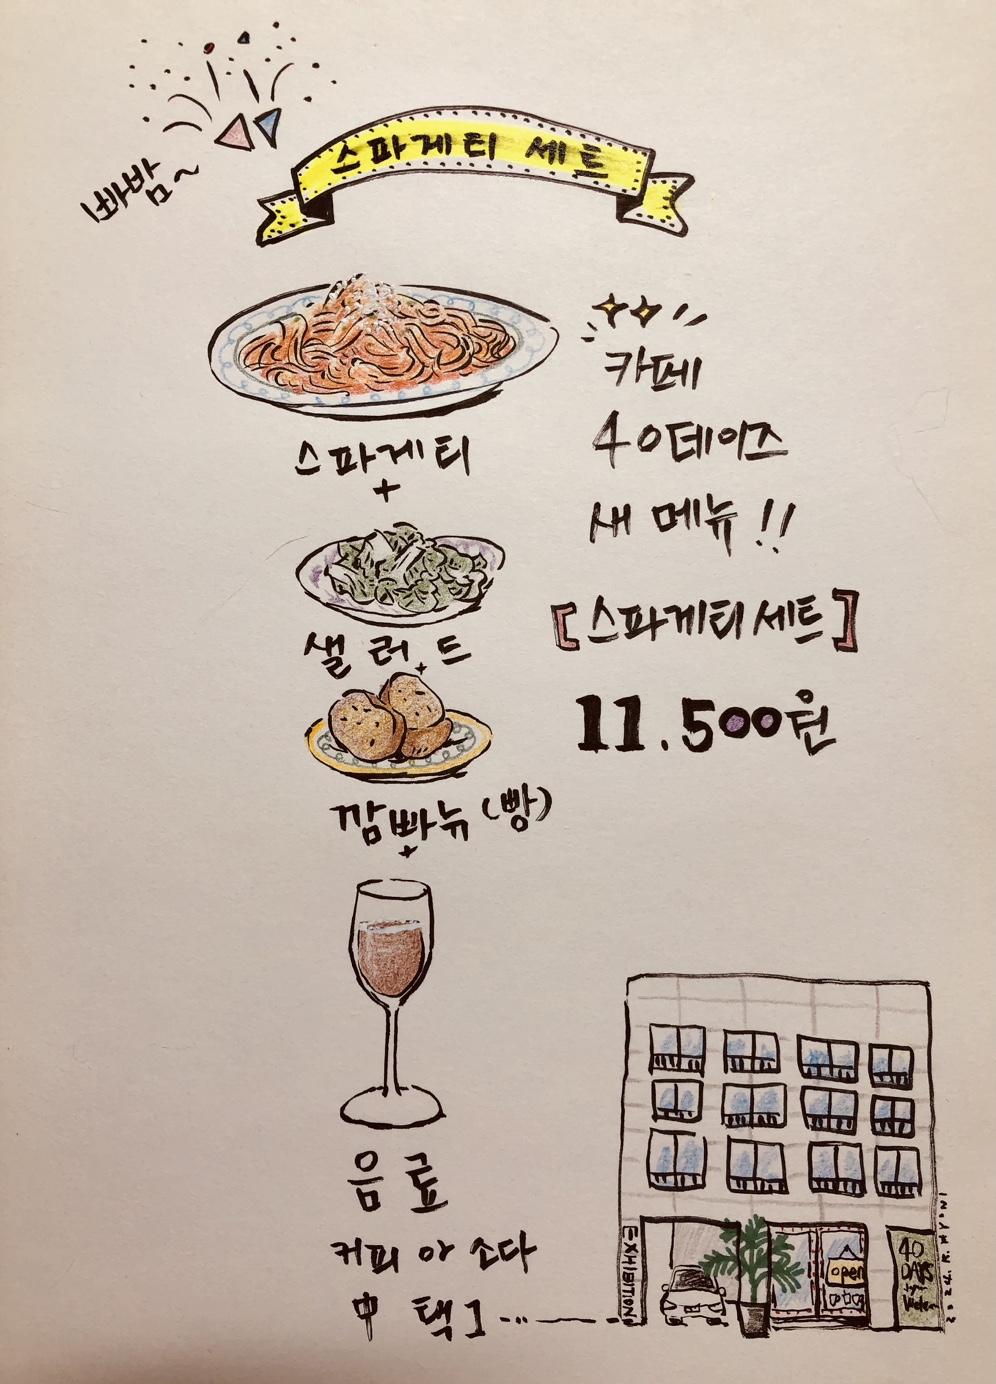 빠밤~
스파게티 세트
스파게티
+
샐러드
+
깜빠뉴 (빵)
+
음료
커피 or 소다
中 택1
카페
40데이즈
새 메뉴!!
[스파게티세트]
11.500원
EXHIBITION
open
40
DAYS